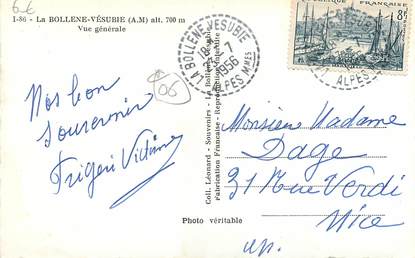 6€
I-86 - La BOLLENE-VÉSUBIE (A.M) alt. 700 m
Vue générale
06
Nos bon
souvenir
Frigeri
Coll. Léonard - Souvenirs - La Bollène-Vésubie
Fabrication Française - Reproduction interdite
Photo véritable
LA BOLLENE-VESUBIE
18H
7
1956
ALPES Mmes
FRANÇAISE
8F
ALPES
Monsieur Madame
Dage
31 Rue Verdi
Nice